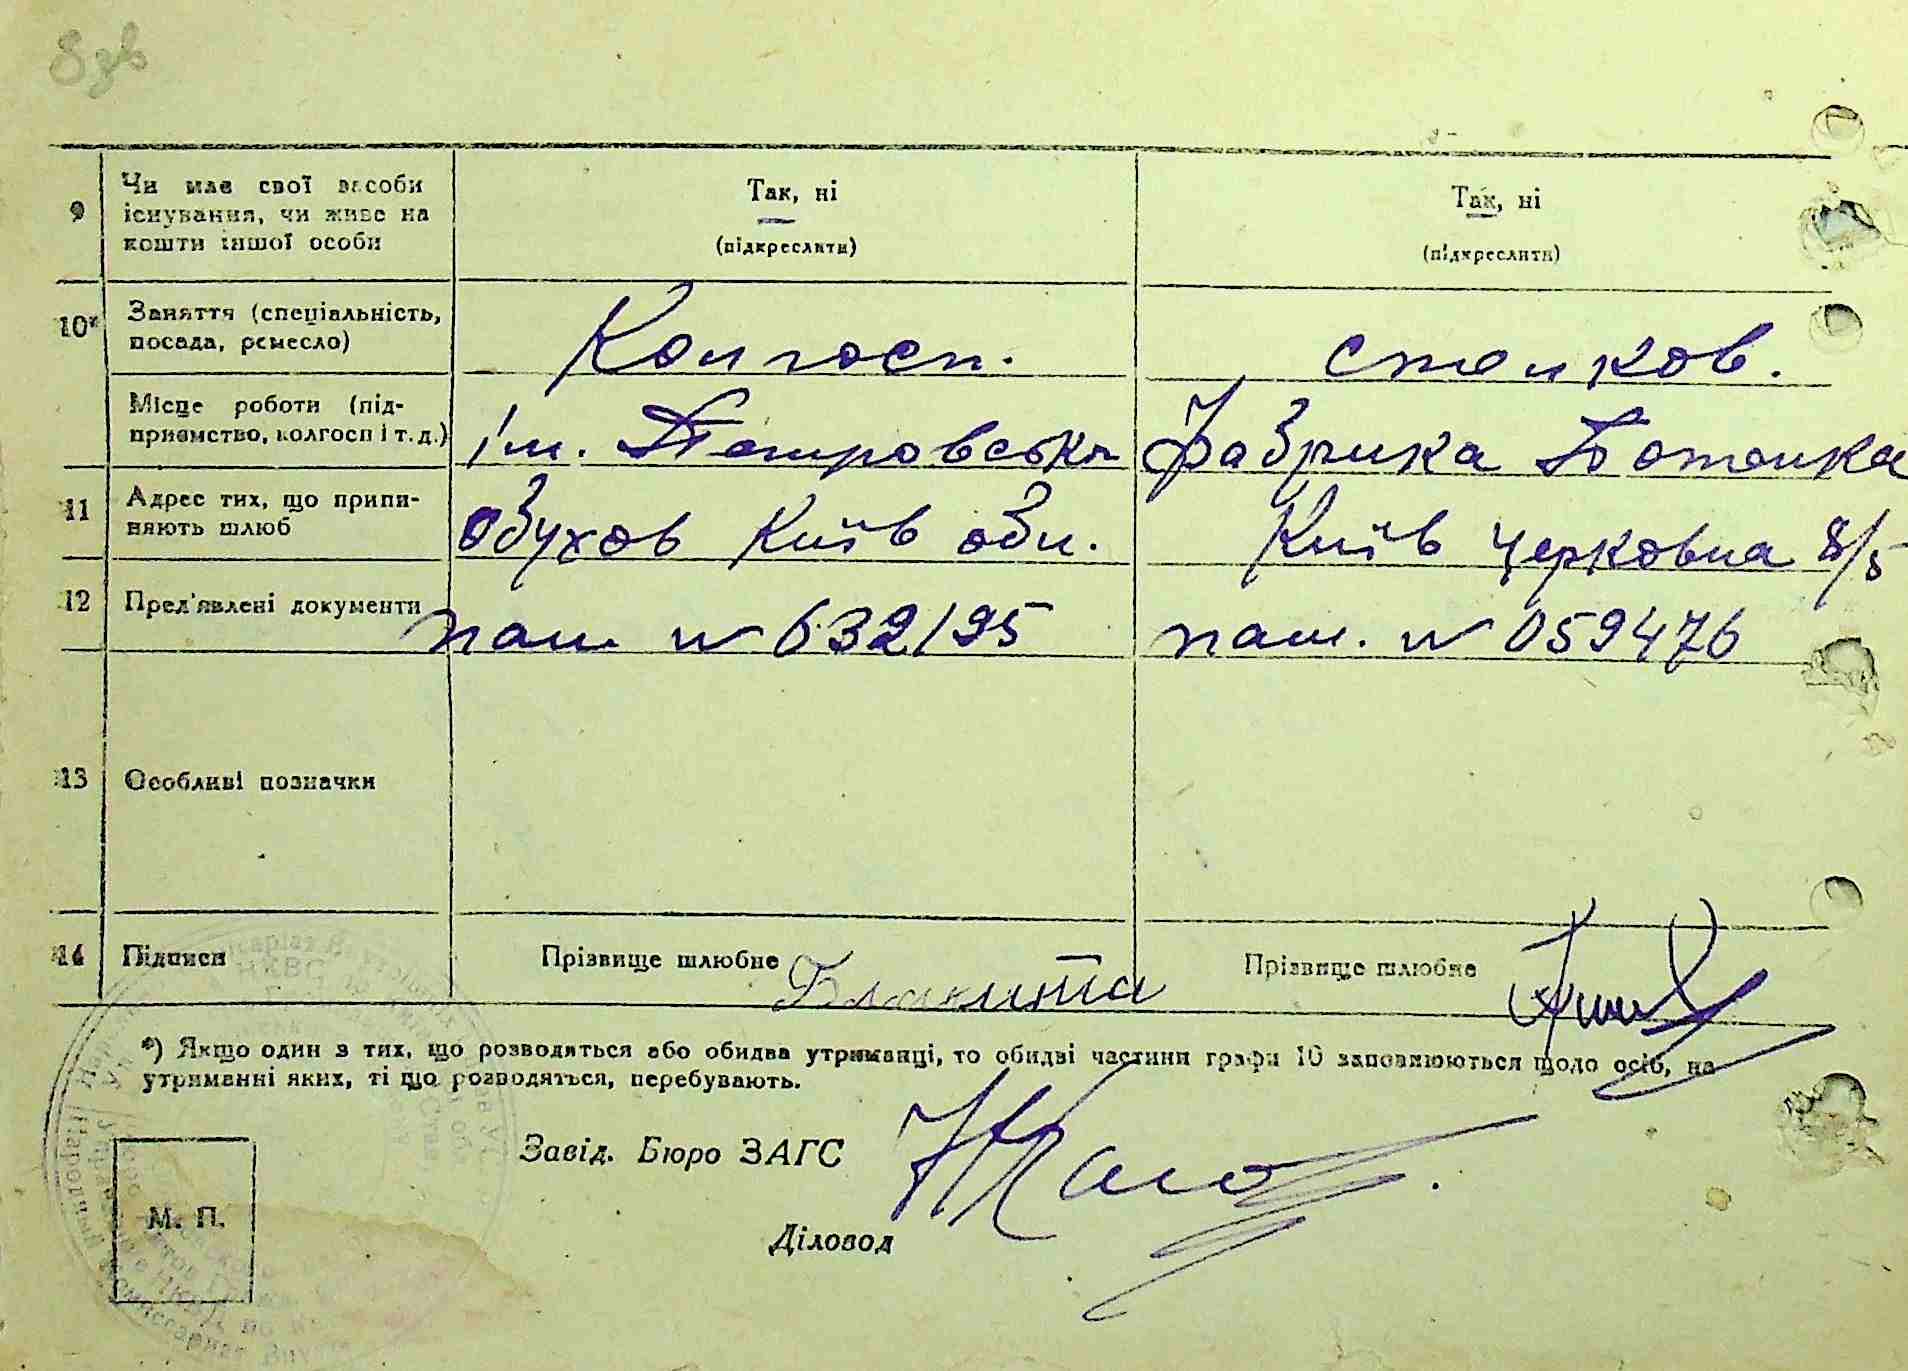 9 Чи має свої засоби Так, ні Так, ні
існування, чи живе на
кошти іншої особи (підкреслити) (підкреслити)
10* Заняття (спеціальність, Колгосп.
посада, ремесло)
Місце роботи (під-
приємство, колгосп і т. д.) ім. Петровськ Фабрика
11 Адрес тих, що припи-
няють шлюб Обухов Київ обл. Київ Церковна 8/5
12 Пред'явлені документи паш № 632195 паш. № 059476
13 Особливі позначки
14 Підписи Прізвище шлюбне Блакита Прізвище шлюбне
*) Якщо один з тих, що розводяться або обидва утриманці, то обидві частини графи 10 заповнюються щодо осіб, на
утриманні яких, ті що розводяться, перебувають.
Завід. Бюро ЗАГС
М. П.
Діловод